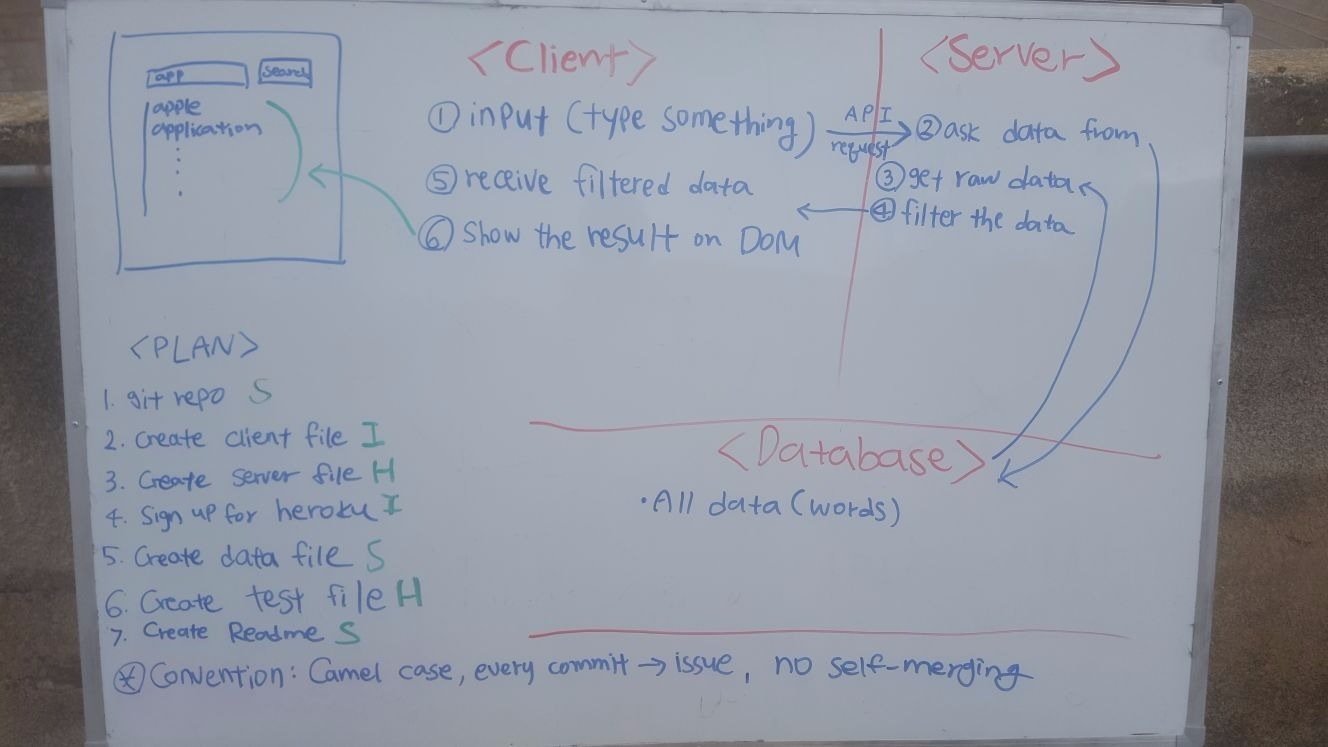 app search
apple
application
<Client>
① input (type something)
⑤ receive filtered data
⑥ Show the result on DOM
API
request
<Server>
② ask data from
③ get raw data
④ filter the data
<Database>
• All data (words)
<PLAN>
1. git repo S
2. Create client file I
3. Create server file H
4. Sign up for heroku I
5. Create data file S
6. Create test file H
7. Create Readme S
* Convention: Camel case, every commit → issue, no self-merging